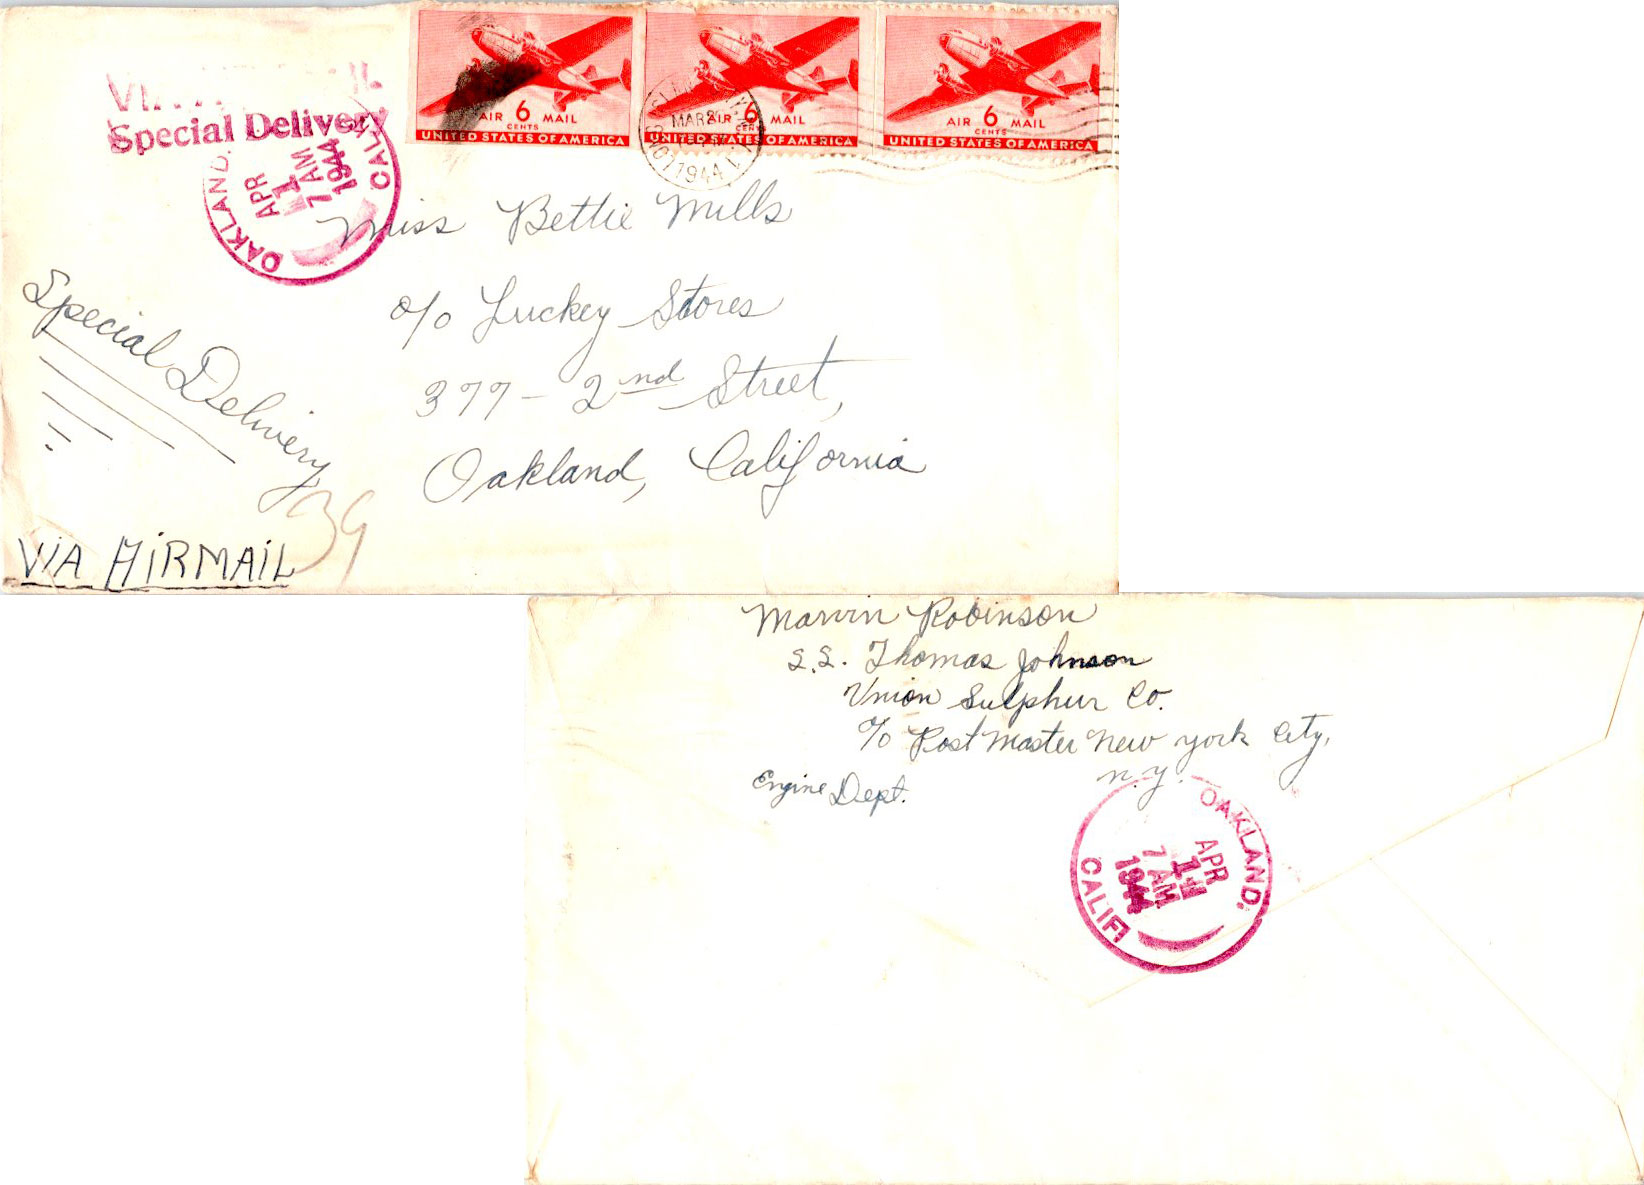 AIR 6 MAIL
CENTS
UNITED STATES OF AMERICA
AIR 6 MAIL
UNITED STATES OF AMERICA
AIR 6 MAIL
CENTS
UNITED STATES OF AMERICA
MAR
1944
Special Delivery
OAKLAND, CALIF
APR
1
7 AM
1944
Miss Bettie Mills
c/o Luckey Stores
377 - 2nd Street,
Oakland, California
Special Delivery
39
VIA AIRMAIL
Marvin Robinson
S.S. Thomas Johnson
Union Sulphur Co.
c/o Post Master New York City,
N.Y.
Engine Dept.
OAKLAND, CALIF
APR
1
7 AM
1944